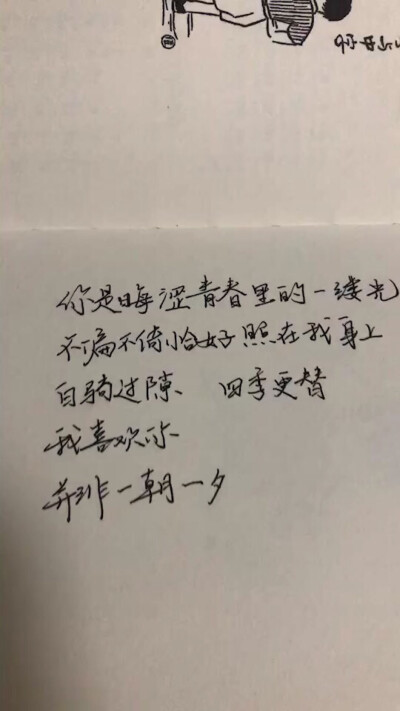 你是晦涩青春里的一缕光
不偏不倚恰好照在我身上
白驹过隙 四季更替
我喜欢你
并非一朝一夕